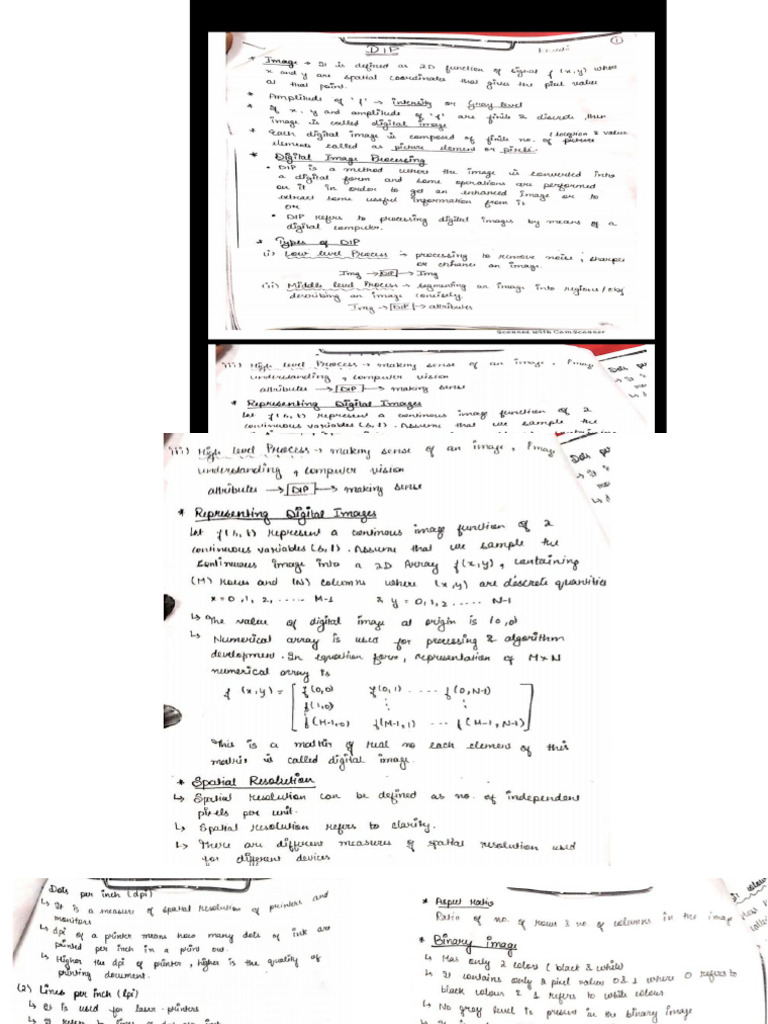 DIP
* Image → It is defined as 2D function of signal f (x,y) where
x and y are spatial coordinate that gives the pixel value
at that point.
* Amplitude of 'f' → intensity or Gray level
* If x, y and amplitude of 'f' are finite & discrete, then
image is called digital image
* Each digital image is composed of finite no. of picture (location & value
elements called as picture element or pixels.
* Digital Image Processing
• DIP is a method where the image is converted into
a digital form and some operations are performed
on it in order to get an enhanced image or to
extract some useful information from it
or
• DIP refers to processing digital images by means of a
digital computer.
* Types of DIP
(i) Low level Process → processing to remove noise, sharpen
or enhance an image.
Img → DIP → Img
(ii) Middle level Process → segmenting an image into regions/obj
describing an image concisely.
Img → DIP → attributes
Scanned with CamScanner
iii) High level Process → making sense of an image, Image
understanding, computer vision
attributes → DIP → making sense
* Representing Digital Images
Let f(s,t) represent a continous image function of 2
continuous variables (s,t). Assume that we sample the
iii) High level Process → making sense of an image, Image
understanding, computer vision
attributes → DIP → making sense
* Representing Digital Images
Let f(s,t) represent a continous image function of 2
continuous variables (s,t). Assume that we sample the
continuous image into a 2D Array f(x,y), containing
(M) rows and (N) columns where (x,y) are discrete quantities
x=0,1,2,..... M-1 & y=0,1,2..... N-1
↳ The value of digital image at origin is (0,0)
↳ Numerical array is used for processing & algorithm
development. In equation form, representation of M×N
numerical array is
f (x,y) = [ f(0,0) f(0,1) .... f(0,N-1)
f(1,0) ⋮ ⋮
f(M-1,0) f(M-1,1) ... f(M-1,N-1) ]
This is a matrix of real no each element of this
matrix is called digital image.
* Spatial Resolution
↳ Spatial resolution can be defined as no. of independent
pixels per unit.
↳ Spatial resolution refers to clarity.
↳ There are different measures of spatial resolution used
for different devices
Dots per inch (dpi)
↳ It is a measure of spatial resolution of printers and
monitors
↳ dpi of a printer means how many dots of ink are
printed per inch in a print out.
↳ Higher the dpi of printer, higher is the quality of
printing document.
(2) Lines per inch (lpi)
↳ It is used for laser printers
* Aspect Ratio
Ratio of no. of rows & no. of columns in the image
* Binary image
↳ Has only 2 colors (black & white)
↳ It contains only 2 pixel values 0 & 1 where 0 refers to
black colour & 1 refers to white colour
↳ No gray level is present in the binary image